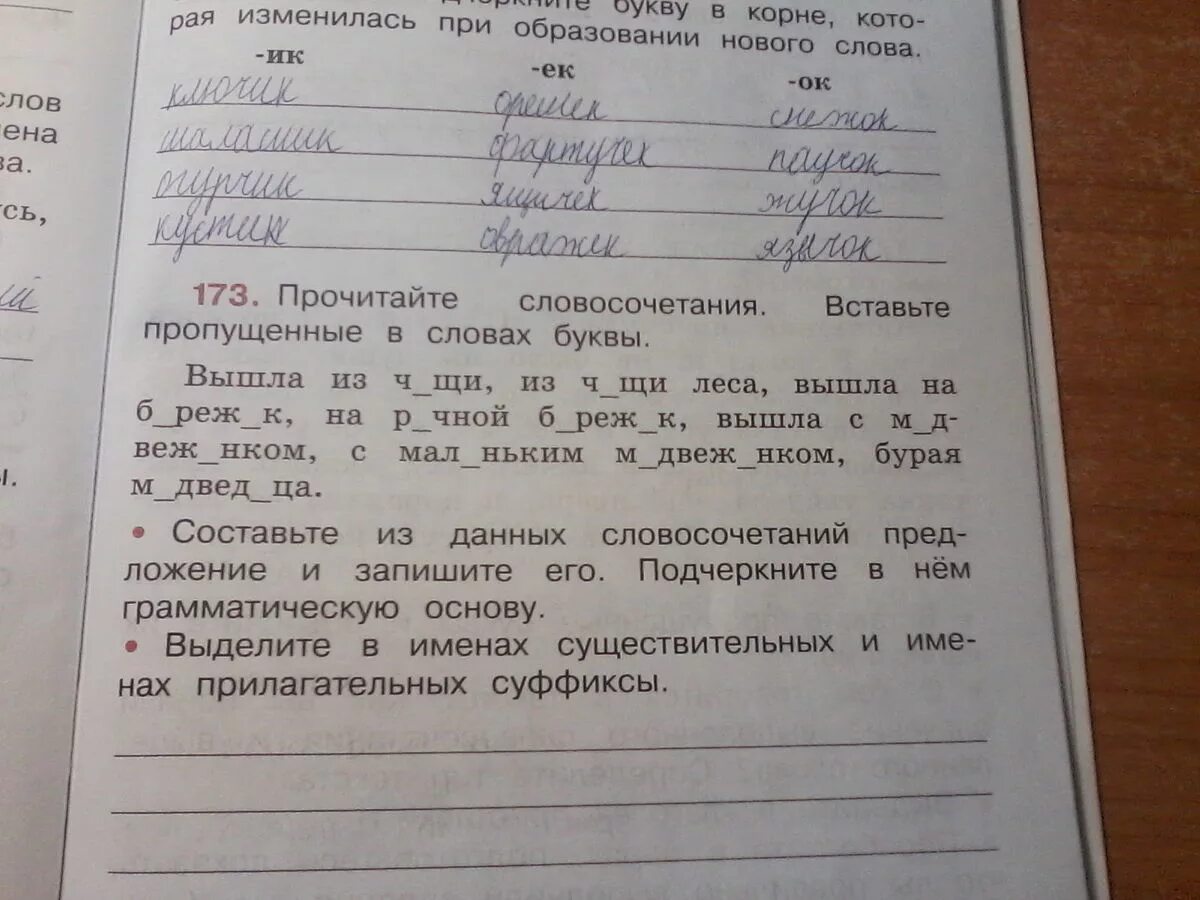 букву в корне, кото-
рая изменилась при образовании нового слова.
-ик -ек -ок
ключик орешек снежок
шалашик фартучек паучок
огурчик ящичек жучок
кустик овражек язычок
слов
ена
ва.
усь,
ый
ы.
173. Прочитайте словосочетания. Вставьте
пропущенные в словах буквы.
Вышла из ч_щи, из ч_щи леса, вышла на
б_реж_к, на р_чной б_реж_к, вышла с м_д-
веж_нком, с мал_ньким м_двеж_нком, бурая
м_двед_ца.
• Составьте из данных словосочетаний пред-
ложение и запишите его. Подчеркните в нём
грамматическую основу.
• Выделите в именах существительных и име-
нах прилагательных суффиксы.